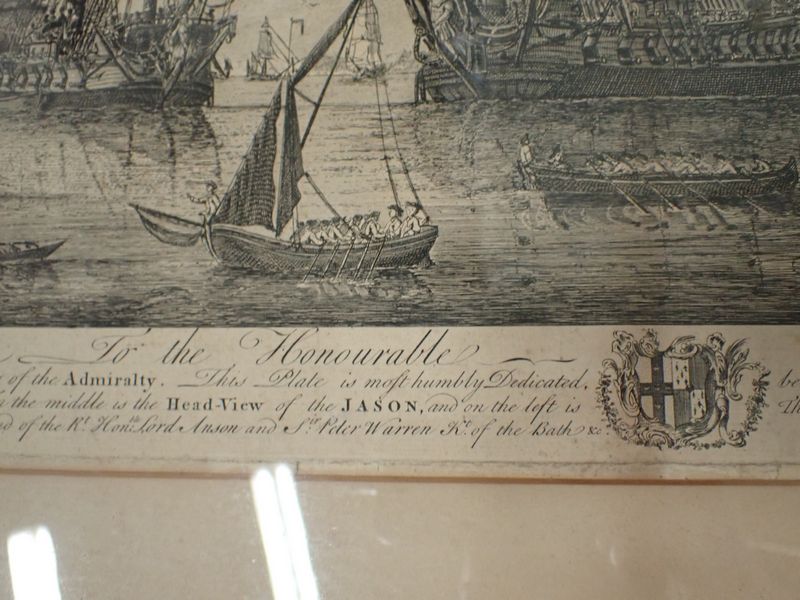 To the Honourable
of the Admiralty. This Plate is most humbly Dedicated, be
the middle is the Head-View of the JASON, and on the left is Th
d of the Rt. Honble. Lord Anson and Sr. Peter Warren Kt. of the Bath &c.